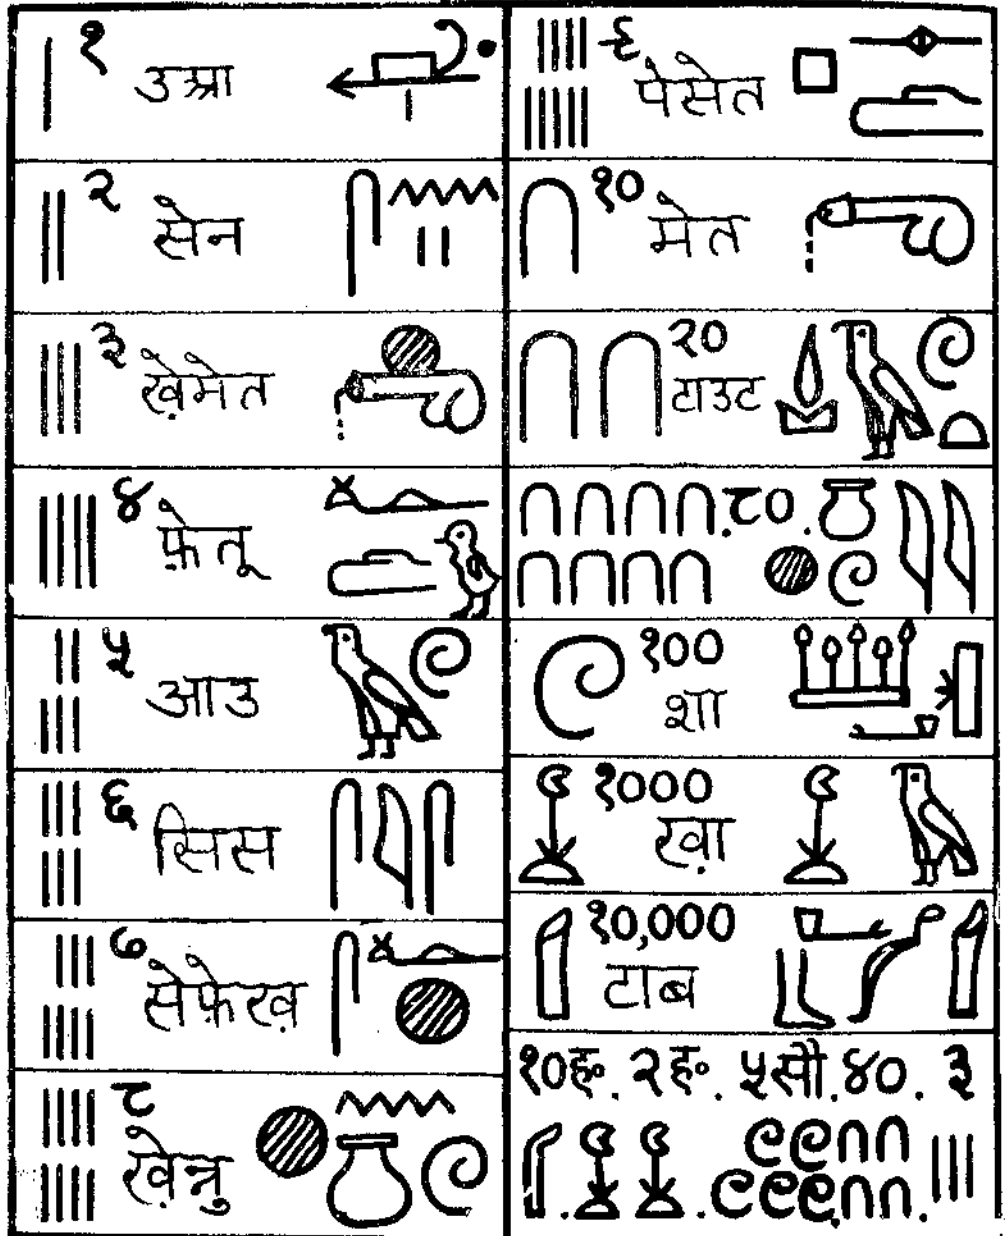 १
उआ
२
सेन
३
ख़ेमेत
४
फ़ेतू
५
आउ
६
सिस
७
सेफ़ेख़
८
ख़ेन्नु
९
पेसेत
१०
मेत
२०
टाउट
८०
१००
शा
१०००
ख़ा
१०,०००
टाब
१०ह॰. २ह॰. ५सौ. ४०. ३